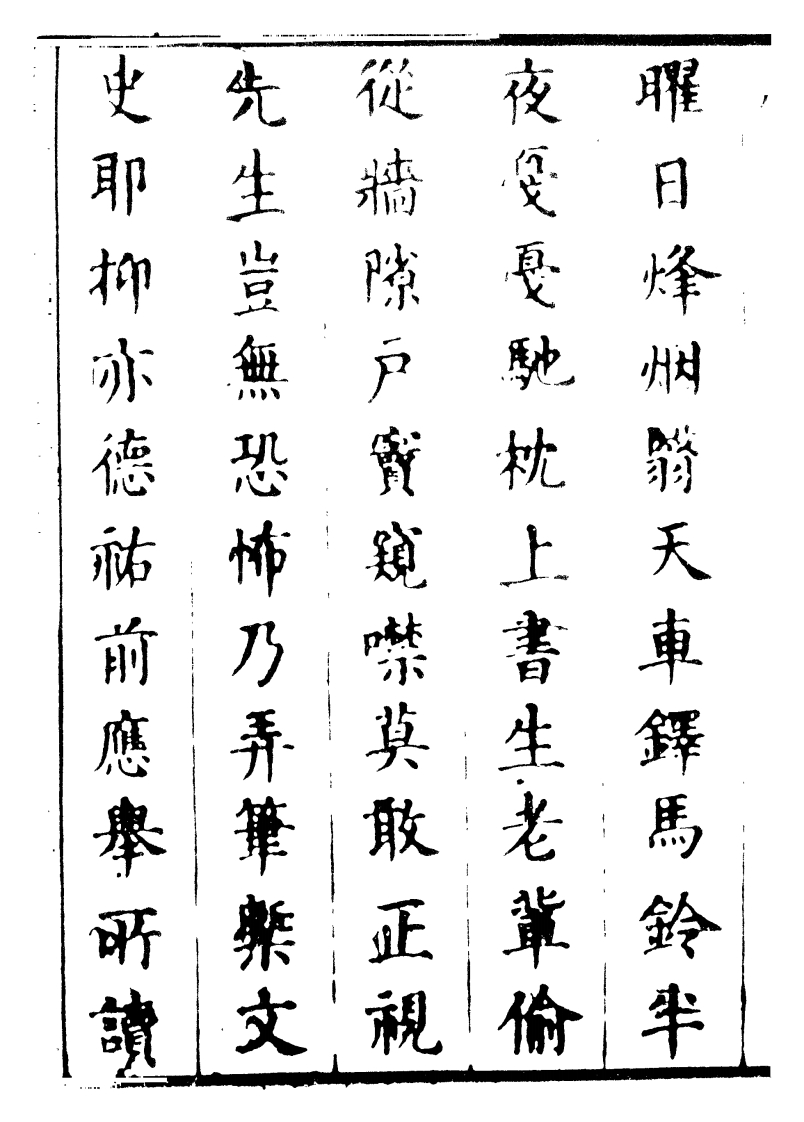 曜日烽烟翳天車鐸馬鈴半
夜戛戛馳枕上書生老輩偷
從牆隙戶竇窺噤莫敢正視
先生豈無恐怖乃弄筆槧文
史耶抑亦德祐前應舉所讀